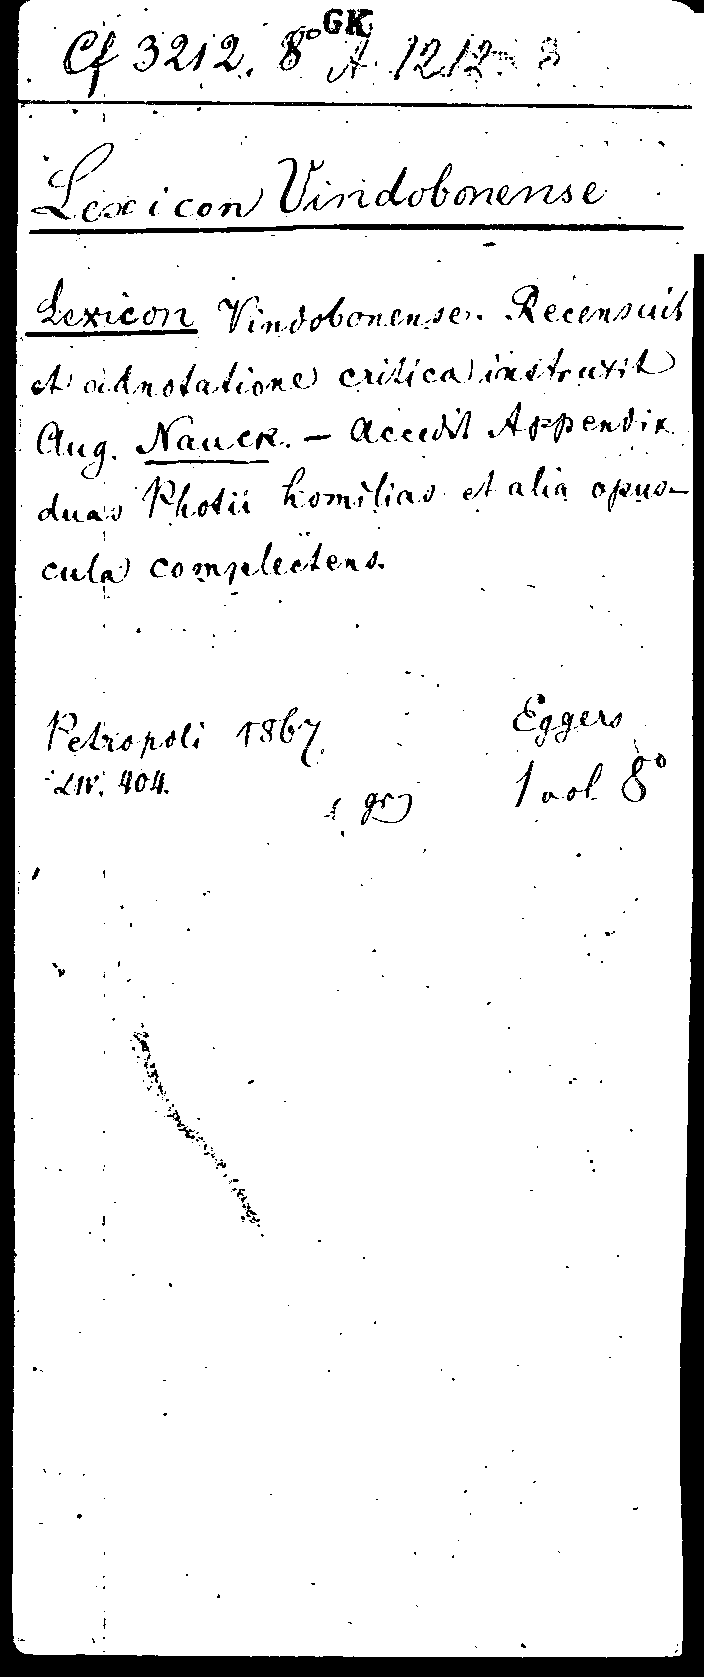 GK
Cf 3212. 8° A. 1212
Lexicon Vindobonense
Lexicon Vindobonense. Recensuit
et adnotatione critica instruxit
Aug. Nauck. — Accedit Appendix
duas Photii homilias et alia opus-
cula complectens.
Petropoli 1867 Eggers
LIV. 404. gr 1 vol 8°